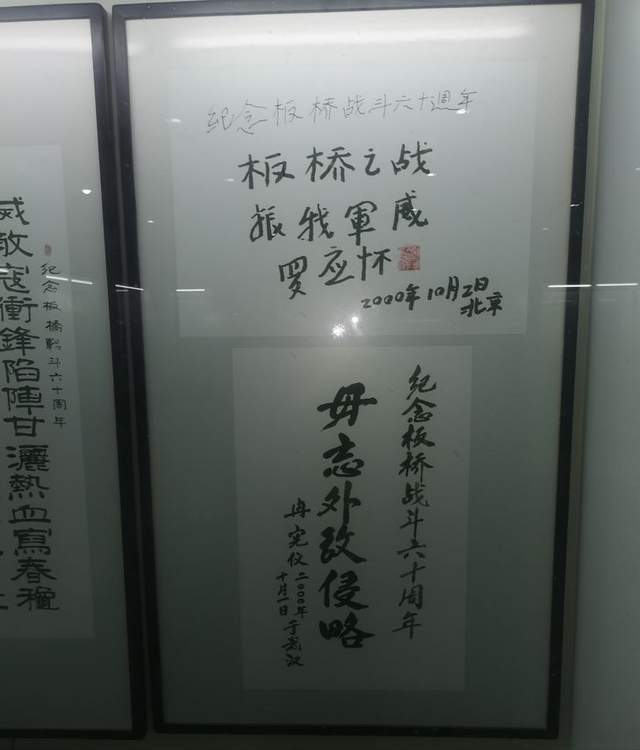 纪念板桥战斗六十週年
板桥之战
振我軍威
罗应怀
2000年10月2日
北京
纪念板桥战斗六十周年
毋忘外敌侵略
冉宪仪二〇〇〇年
十月一日于武汉
纪念板橋戰斗六十周年
威敌寇衝鋒陷陣甘灑熱血寫春